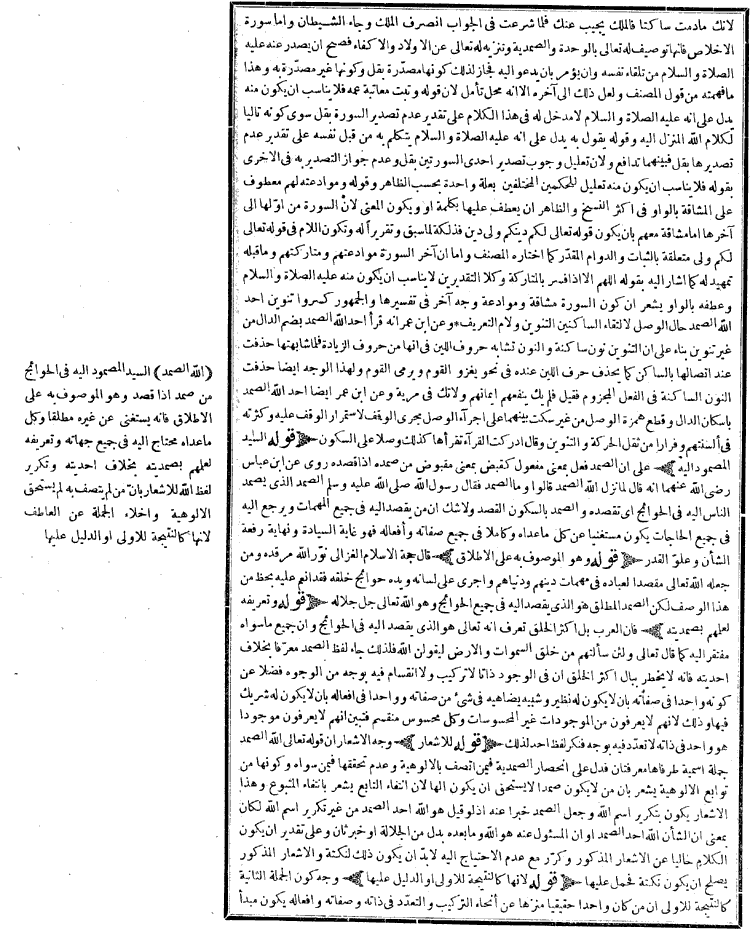 لانك مادمت ساكتا فالملك يجيب عنك فلما شرعت فى الجواب انصرف الملك وجاء الشيطان واما سورة
الاخلاص فانها توصيف له تعالى بالوحدة والصمدية وتنزيه له تعالى عن الاولاد والاكفاء فصح ان يصدر عنه عليه
الصلاة والسلام من تلقاء نفسه وان يؤمر بان يدعو اليه فجاز لذلك كونها مصدرة بقل وكونها غير مصدرة به وهذا
مافهمته من قول المصنف ولعل ذلك الى آخره الا انه محل تأمل لان قوله وتبت معاتبة عمه فلا يناسب ان يكون منه
يدل على انه عليه الصلاة والسلام لامدخل له فى هذا الكلام على تقدير عدم تصدير السورة بقل سوى كونه تاليا
لكلام الله المنزل اليه وقوله يقول به يدل على انه عليه الصلاة والسلام يتكلم به من قبل نفسه على تقدير عدم
تصديرها بقل فبينهما تدافع ولان تعليل وجوب تصدير احدى السورتين بقل وعدم جواز التصدير به فى الاخرى
بقوله فلا يناسب ان يكون منه تعليل للحكمين المختلفين بعلة واحدة بحسب الظاهر وقوله وموادعته لهم معطوف
على المشاقة بالواو فى اكثر النسخ والظاهر ان يعطف عليها بكلمة او ويكون المعنى لان السورة من اولها الى
آخرها اما مشاقة معهم بان يكون قوله تعالى لكم دينكم ولى دين فذلكة لما سبق وتقريرا له وتكون اللام فى قوله تعالى
لكم ولى متعلقة بالثبات والدوام المقدر كما اختاره المصنف واما ان آخر السورة موادعتهم ومتاركتهم وماقبله
تمهيد له كما اشار اليه بقوله اللهم الا اذا فسر بالمتاركة وكلا التقديرين لا يناسب ان يكون منه عليه الصلاة والسلام
وعطفه بالواو يشعر ان كون السورة مشاقة وموادعة وجه آخر فى تفسيرها والجمهور كسروا تنوين احد
الله الصمد حال الوصل لالتقاء الساكنين التنوين ولام التعريف * وعن ابن عمر انه قرأ احد الله الصمد بضم الدال من
غير تنوين بناء على ان التنوين نون ساكنة والنون تشابه حروف اللين فى انها من حروف الزيادة فلما شابهتها حذفت
عند اتصالها بالساكن كما يحذف حرف اللين عنده فى نحو يغزو القوم ويرمى القوم ولهذا الوجه ايضا حذفت
النون الساكنة فى الفعل المجزوم فقيل فلم يك ينفعهم ايمانهم ولا تك فى مرية وعن ابن عمر ايضا احد الله الصمد
باسكان الدال وقطع همزة الوصل من غير سكت بينهما على اجراء الوصل مجرى الوقف لاستمرار الوقف عليه وكثرته
فى ألسنتهم وفرارا من ثقل الحركة والتنوين وقال ادركت القراء تقرأها كذلك وصلا على السكون ﴿ قوله السيد
المصمود اليه ﴾ على ان الصمد فعل بمعنى مفعول كقبض بمعنى مقبوض من صمده اذا قصده روى عن ابن عباس
رضى الله عنهما انه قال لما نزل الله الصمد قالوا وما الصمد فقال رسول الله صلى الله عليه وسلم الصمد الذى يصمد
الناس اليه فى الحوائج اى تقصده والصمد بالسكون القصد ولا شك ان من يقصد اليه فى جميع المهمات ويرجع اليه
فى جميع الحاجات يكون مستغنيا عن كل ماعداه وكاملا فى جميع صفاته وأفعاله فهو غاية السيادة ونهاية رفعة
الشأن وعلو القدر ﴿ قوله وهو الموصوف به على الاطلاق ﴾ قال حجة الاسلام الغزالى نور الله مرقده ومن
جعله الله تعالى مقصدا لعباده فى مهمات دينهم ودنياهم واجرى على لسانه ويده حوائج خلقه فقد انعم عليه بحظ من
هذا الوصف لكن الصمد المطلق هو الذى يقصد اليه فى جميع الحوائج وهو الله تعالى جل جلاله ﴿ قوله وتعريفه
لعلهم بصمديته ﴾ فان العرب بل اكثر الخلق تعرف انه تعالى هو الذى يقصد اليه فى الحوائج وان جميع ماسواه
مفتقر اليه كما قال تعالى ولئن سألتهم من خلق السموات والارض ليقولن الله فلذلك جاء لفظ الصمد معرفا بخلاف
احديته فانه لا يخطر ببال اكثر الخلق ان فى الوجود ذاتا لا تركيب ولا انقسام فيه بوجه من الوجوه فضلا عن
كونه واحدا فى صفاته بان لا يكون له نظير وشبيه يضاهيه فى شئ من صفاته وواحدا فى افعاله بان لا يكون له شريك
فيها وذلك لانهم لا يعرفون من الموجودات غير المحسوسات وكل محسوس منقسم فتبين انهم لا يعرفون موجودا
هو واحد فى ذاته لا تعدد فيه بوجه فنكر لفظ احد لذلك ﴿ قوله للاشعار ﴾ وجه الاشعار ان قوله تعالى الله الصمد
جملة اسمية طرفاها معرفتان فدل على انحصار الصمدية فيمن اتصف بالالوهية وعدم تحققها فيمن سواه وكونها من
توابع الالوهية يشعر بان من لا يكون صمدا لا يستحق ان يكون الها لان انتفاء التابع يشعر بانتفاء المتبوع وهذا
الاشعار يكون بتكرير اسم الله وجعل الصمد خبرا عنه اذ لو قيل هو الله احد الصمد من غير تكرير اسم الله لكان
بمعنى ان الشأن الله احد الصمد او ان المسئول عنه هو الله وما بعده بدل من الجلالة او خبر ثان وعلى تقدير ان يكون
الكلام خاليا عن الاشعار المذكور وكرر مع عدم الاحتياج اليه لابد ان يكون ذلك لنكتة والاشعار المذكور
يصلح ان يكون نكتة فحمل عليها ﴿ قوله لانها كالنتيجة للاولى او الدليل عليها ﴾ وجه كون الجملة الثانية
كالنتيجة للاولى ان من كان واحدا حقيقيا منزها عن أنحاء التركيب والتعدد فى ذاته وصفاته وافعاله يكون مبدأ
(الله الصمد) السيد المصمود اليه فى الحوائج
من صمد اذا قصد وهو الموصوف به على
الاطلاق فانه يستغنى عن غيره مطلقا وكل
ماعداه محتاج اليه فى جميع جهاته وتعريفه
لعلهم بصمديته بخلاف احديته وتكرير
لفظ الله للاشعار بان من لم يتصف به لم يستحق
الالوهية واخلاء الجملة عن العاطف
لانها كالنتيجة للاولى او الدليل عليها